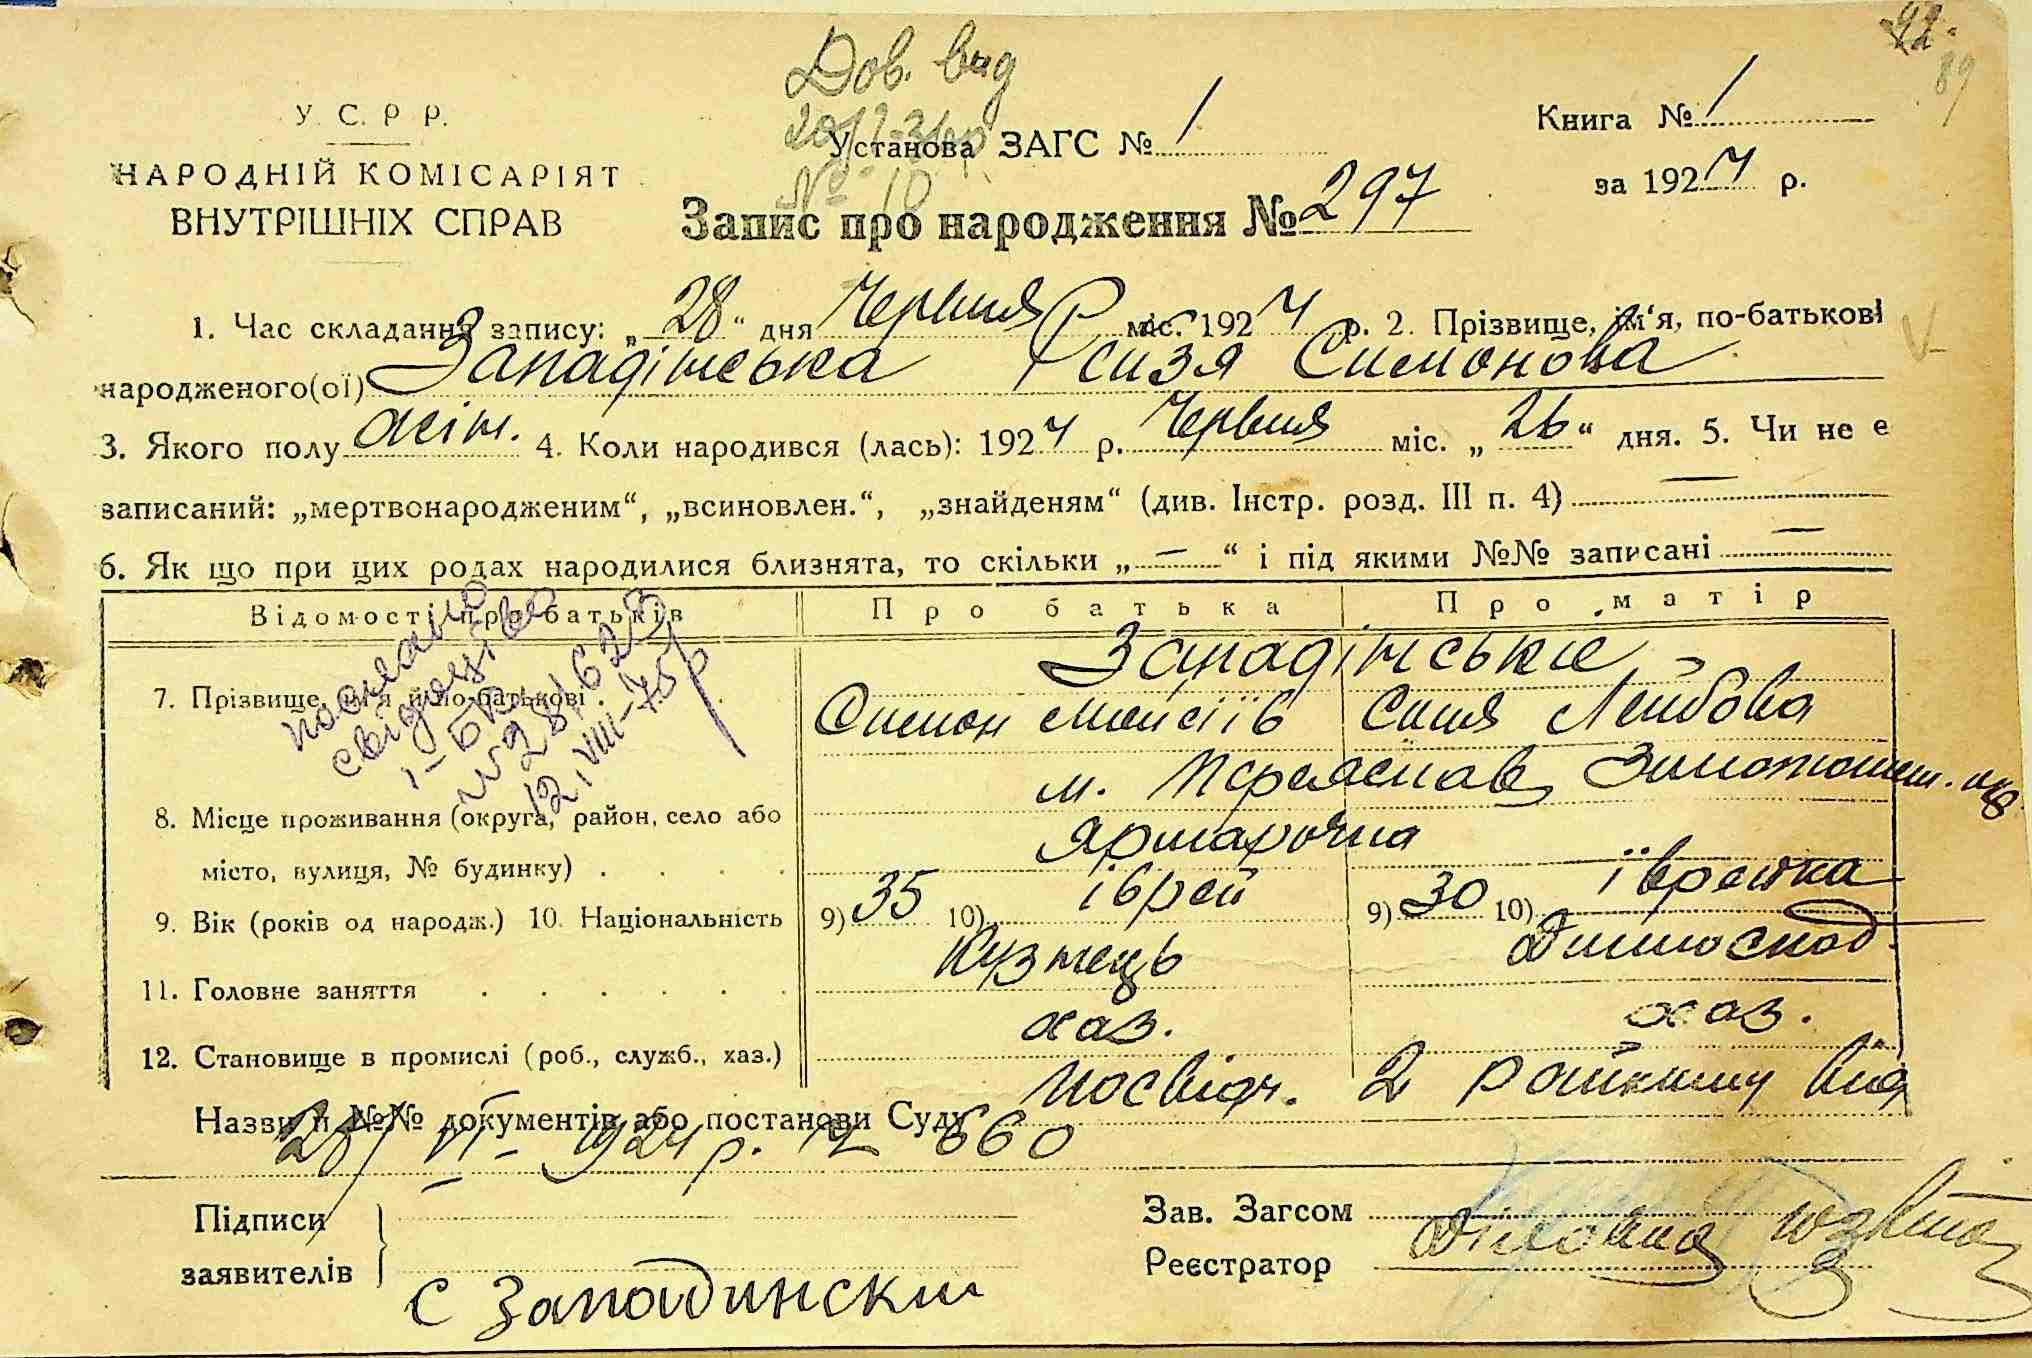 92.
89
Дов. вид
У. С. Р. Р.
НАРОДНІЙ КОМІСАРІЯТ
ВНУТРІШНІХ СПРАВ
№ 10
Установа ЗАГС № 1
Книга № 1
за 1924 р.
Запис про народження № 297
1. Час складання запису: „28“ дня Червня міс. 1924 р. 2. Прізвище, ім'я, по-батькові
народженого(ої) Западінська Рсизя Симонова
3. Якого полу жін. 4. Коли народився (лась): 1924 р. Червня міс. „26“ дня. 5. Чи не є
записаний: „мертвонародженим“, „всиновлен.“, „знайденям“ (див. Інстр. розд. III п. 4) —
6. Як що при цих родах народилися близнята, то скільки „—“ і під якими №№ записані —
Відомості про батьків Про батька Про матір
Западінські
7. Прізвище, ім'я й по-батькові . Симон Мойсіїв Сима Лейбова
послано
свідоцтво
12/VIII-75р
м. Переяслав Золотонош. окр
8. Місце проживання (округа, район, село або
місто, вулиця, № будинку) . . . . Ярмарочна
9. Вік (років од народж.) 10. Національність 9) 35 10) іврей 9) 30 10) івреика
11. Головне заняття . . . . . . Кузнець Домоскод.
12. Становище в промислі (роб., служб., хаз.) хаз. хаз.
Назви й №№ документів або постанови Суду Посвідч. 2 райкому від
28/VI-1924 р. № 660
Підписи
заявителів
С Западинский
Зав. Загсом
Реєстратор